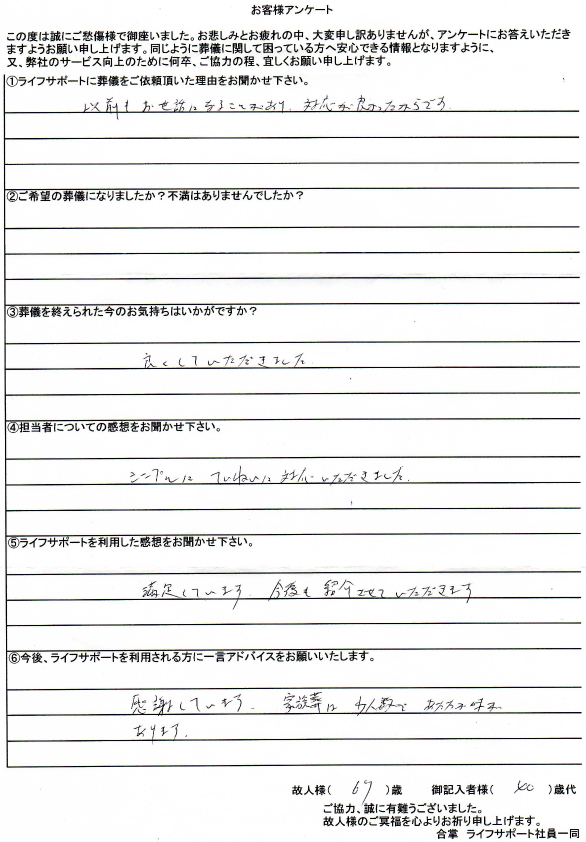 お客様アンケート
この度は誠にご愁傷様で御座いました。お悲しみとお疲れの中、大変申し訳ありませんが、アンケートにお答えいただき
ますようお願い申し上げます。同じように葬儀に関して困っている方へ安心できる情報となりますように、
又、弊社のサービス向上のために何卒、ご協力の程、宜しくお願い申し上げます。
①ライフサポートに葬儀をご依頼頂いた理由をお聞かせ下さい。
以前もお世話になることがあり、対応が良かったからです。
②ご希望の葬儀になりましたか？不満はありませんでしたか？
③葬儀を終えられた今のお気持ちはいかがですか？
良くしていただきました
④担当者についての感想をお聞かせ下さい。
シンプルに ていねいに 対応いただきました。
⑤ライフサポートを利用した感想をお聞かせ下さい。
満足しています 今後も 紹介させていただきます
⑥今後、ライフサポートを利用される方に一言アドバイスをお願いいたします。
感謝しています。 家族葬は 少人数で
あります。
故人様（ 67 ）歳 御記入者様（ 40 ）歳代
ご協力、誠に有難うございました。
故人様のご冥福を心よりお祈り申し上げます。
合掌 ライフサポート社員一同